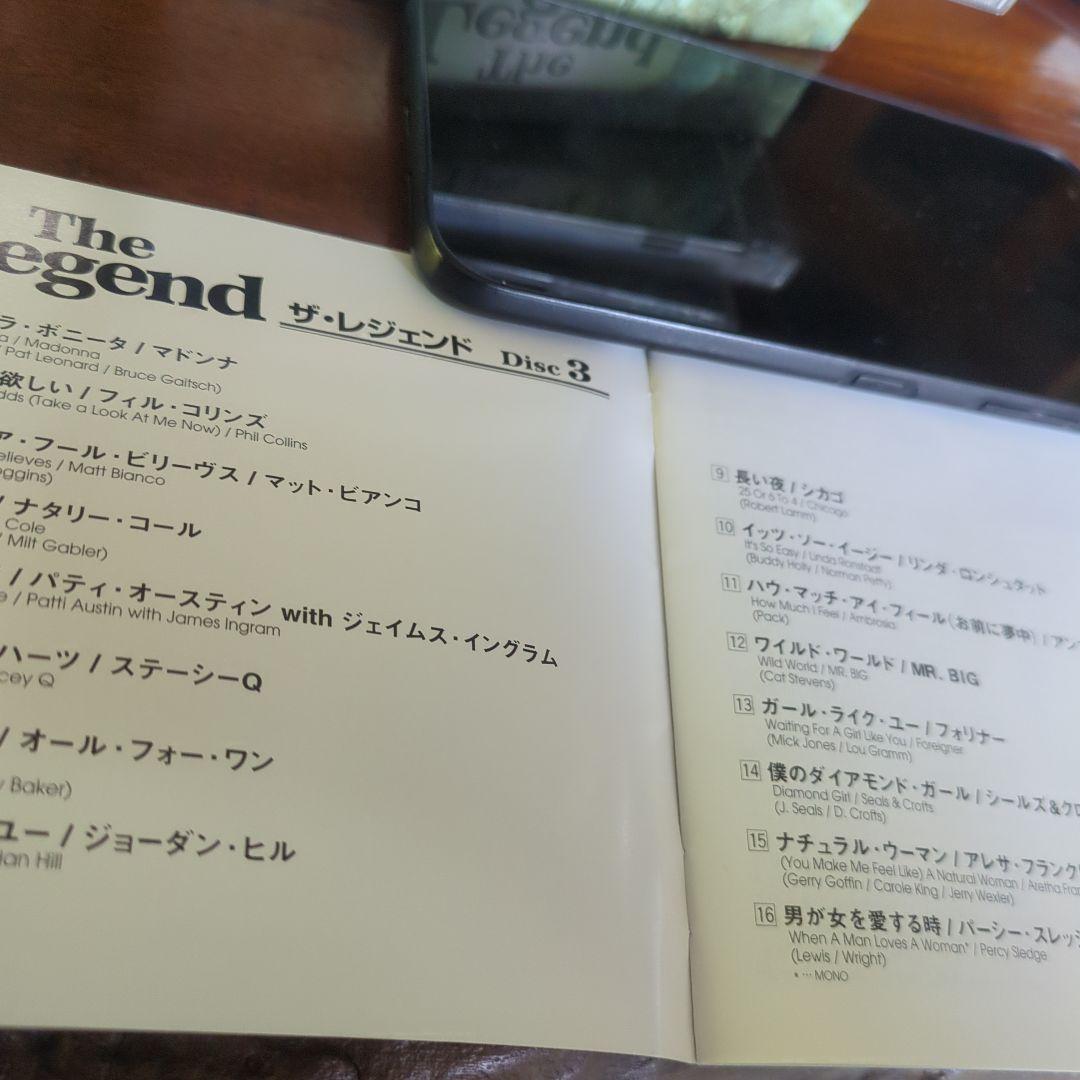 The
egend
ザ・レジェンド Disc 3
ラ・ボニータ / マドンナ
/ Madonna
/ Pat Leonard / Bruce Gaitsch)
欲しい / フィル・コリンズ
dds (Take a Look At Me Now) / Phil Collins
ア・フール・ビリーヴス / マット・ビアンコ
elieves / Matt Bianco
oggins)
/ ナタリー・コール
Cole
/ Milt Gabler)
/ パティ・オースティン with ジェイムス・イングラム
e / Patti Austin with James Ingram
ハーツ / ステーシーQ
cey Q
/ オール・フォー・ワン
y Baker)
ユー / ジョーダン・ヒル
dan Hill
9 長い夜 / シカゴ
25 Or 6 To 4 / Chicago
(Robert Lamm)
10 イッツ・ソー・イージー / リンダ・ロンシュタット
It's So Easy / Linda Ronstadt
(Buddy Holly / Norman Petty)
11 ハウ・マッチ・アイ・フィール(お前に夢中) / アン
How Much I Feel / Ambrosia
(Pack)
12 ワイルド・ワールド / MR. BIG
Wild World / MR. BIG
(Cat Stevens)
13 ガール・ライク・ユー / フォリナー
Waiting For A Girl Like You / Foreigner
(Mick Jones / Lou Gramm)
14 僕のダイアモンド・ガール / シールズ&クロ
Diamond Girl / Seals & Crofts
(J. Seals / D. Crofts)
15 ナチュラル・ウーマン / アレサ・フランク
(You Make Me Feel Like) A Natural Woman / Aretha Fran
(Gerry Goffin / Carole King / Jerry Wexler)
16 男が女を愛する時 / パーシー・スレッジ
When A Man Loves A Woman* / Percy Sledge
(Lewis / Wright)
* … MONO